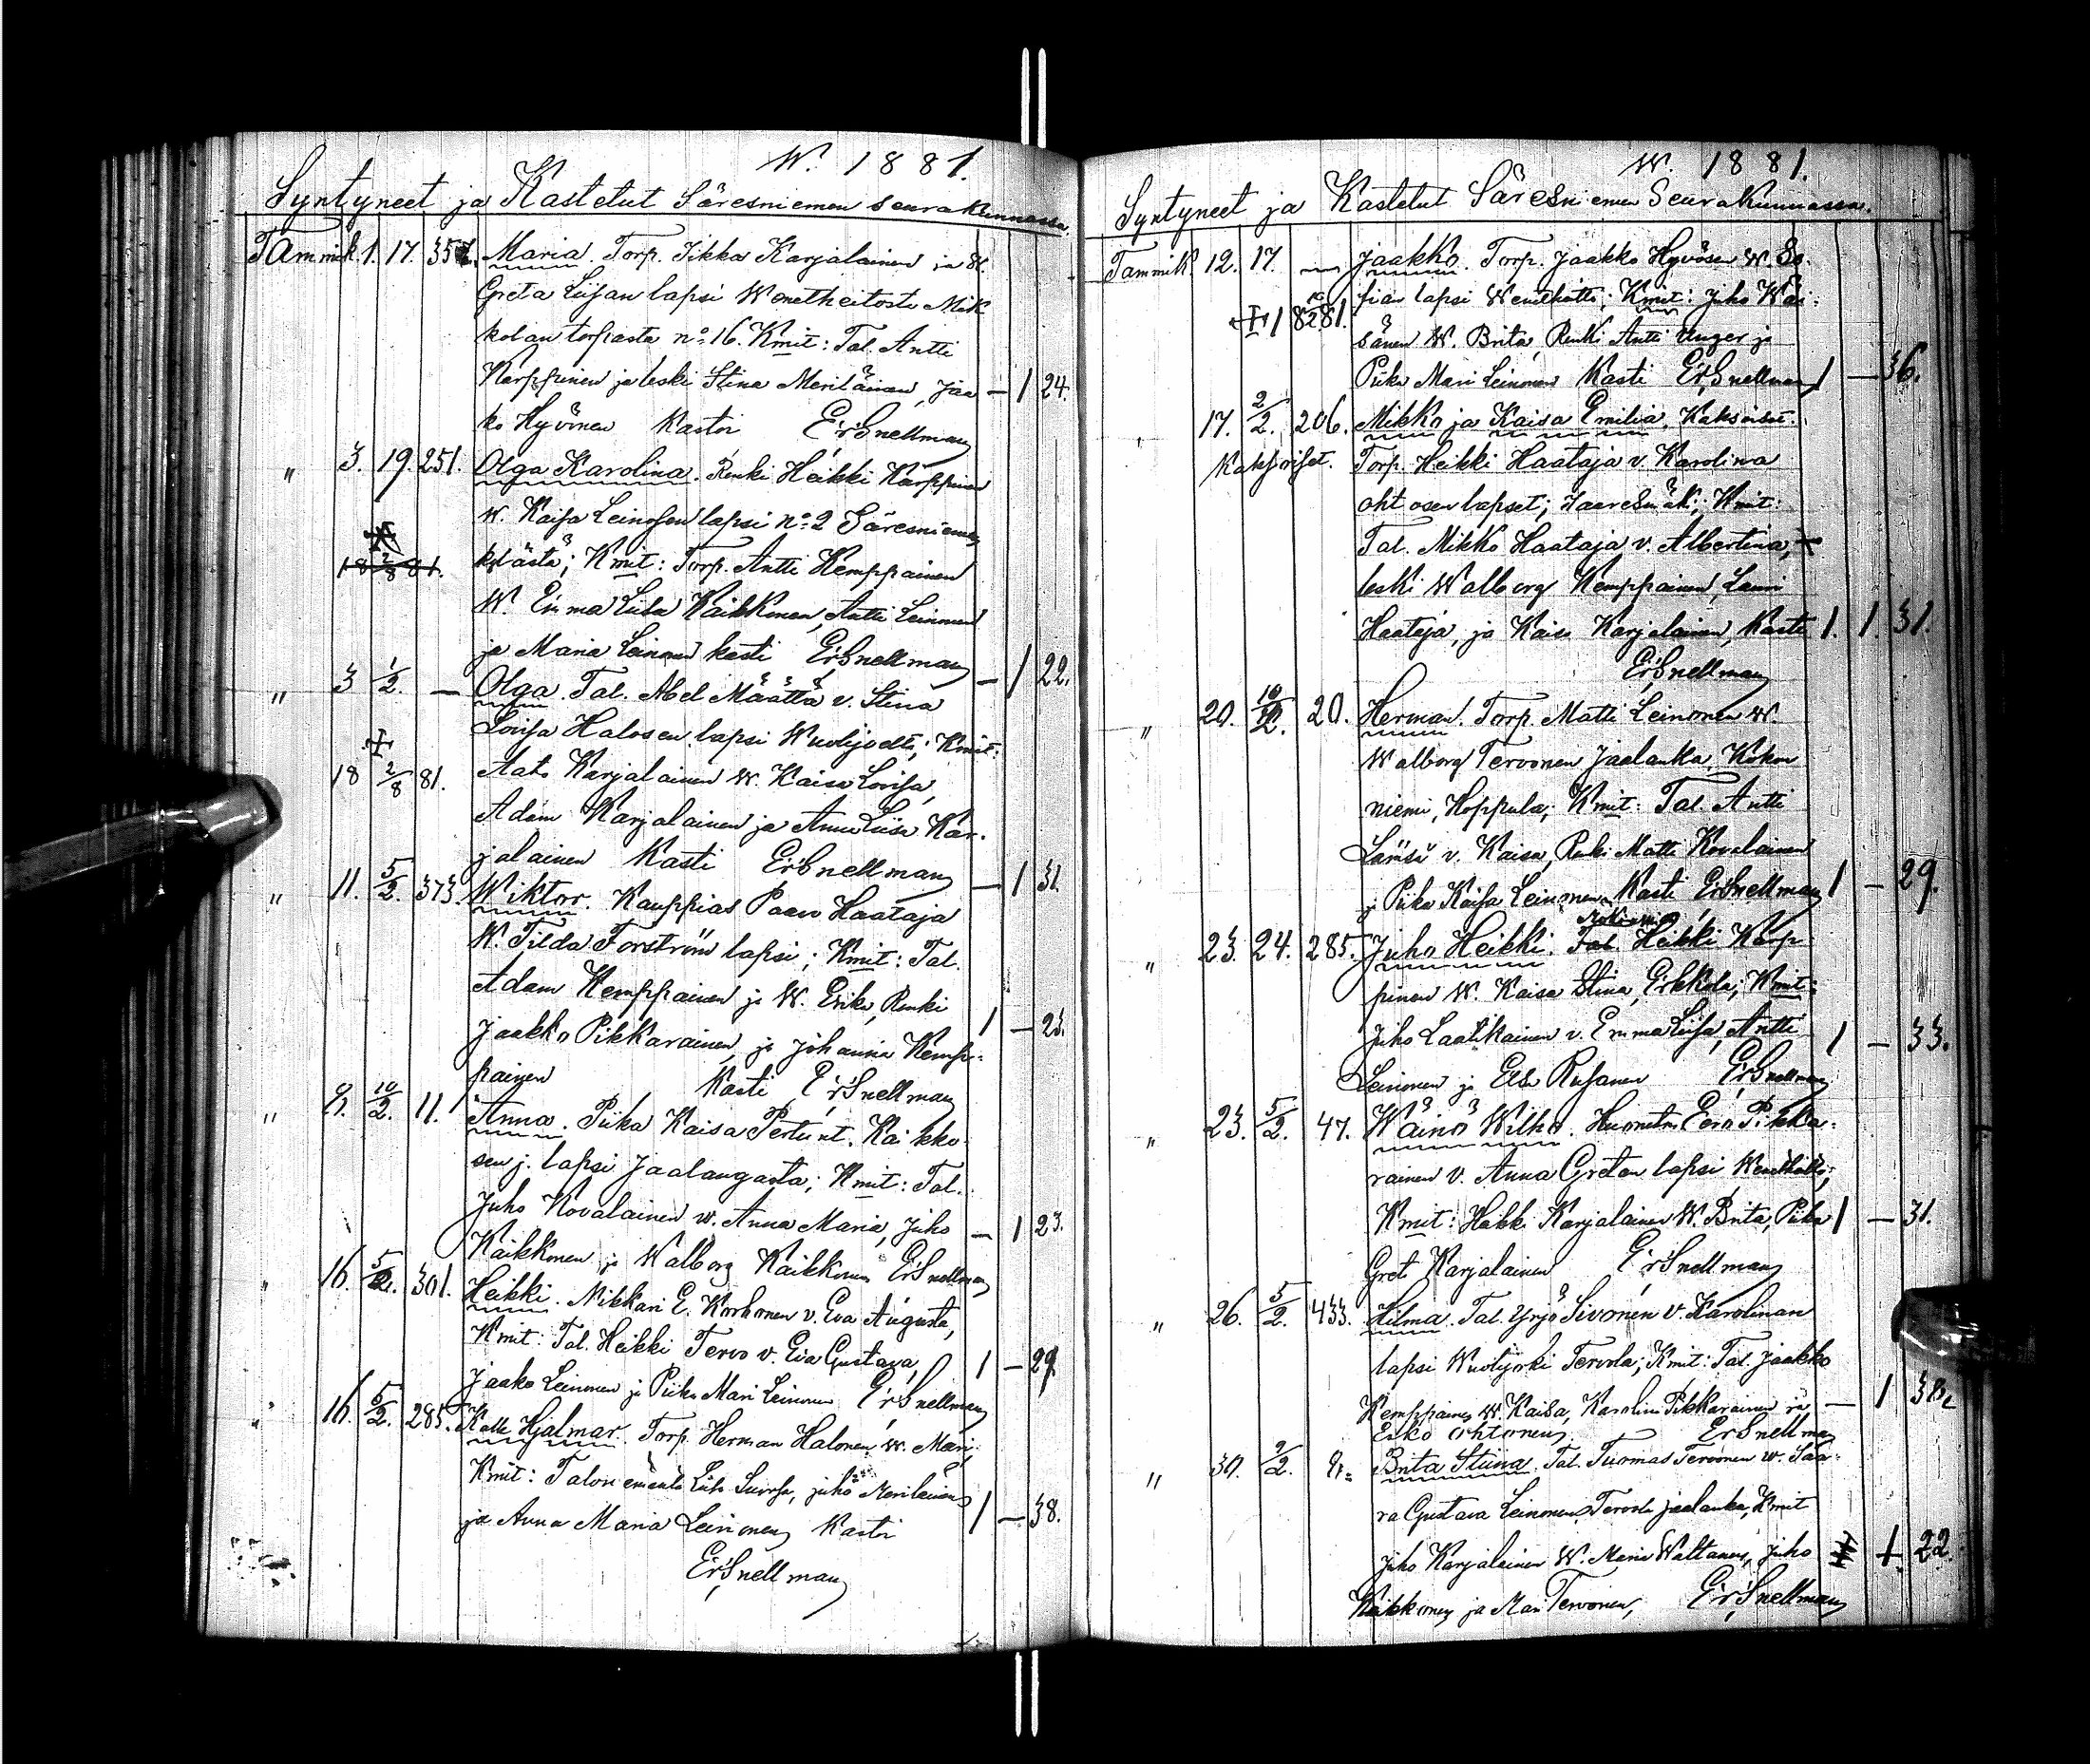 W. 1881.
Syntyneet ja Kastetut Säresniemen seurakunnassa.
Tammik. 1. 17. 357. Maria. Torp. Iikka Karjalainen ja W.
Greta Liisan lapsi Wenetheitosta Mik
kolan torpasta no 16. Kmit: Tal. Antti
Karppinen ja leski Stina Meriläinen, Jaa — 1 24.
ko Hyvönen Kastoi ErSnellman
" 3. 19. 251. Olga Karolina. Renki Heikki Karppinen
W. Kaisa Leinosen lapsi no 2 Säresniemen
18 2/8 81. kylästä; Kmit: Torp. Antti Kemppainen
W. Emma Liisa Kaikkonen, Antti Leinonen
ja Maria Leinonen kasti ErSnellman — 1 22.
" 3 1/2. — Olga. Tal. Abel Määttä v. Stina
Lovisa Halosen lapsi Kmit:
18 2/8 81. Aato Karjalainen W. Kaisa Lovisa,
Adam Karjalainen ja Anna Liisa Kar-
jalainen Kasti ErSnellman — 1 31.
" 11. 5/2. 373. Wiktor. Kauppias Paavo Haataja
W. Tilda Forström lapsi; Kmit: Tal.
Adam Kemppainen ja W. Erika, Renki
Jaakko Pikkarainen, ja Johanna Kemp- 1 — 23.
painen Kasti ErSnellman
" 9. 10/2. 11. Anna. Piika Kaisa Pertunt. Kaikko-
sen j. lapsi Jaalangasta; Kmit: Tal.
Juho Kovalainen w. Anna Maria, Juho — 1 23.
Kaikkonen ja Walborg Kaikkonen ErSnellman
" 16. 5/2. 301. Heikki. Nikkari E. Korhonen v. Eva Augusta,
Kmit: Tal. Heikki Tervo v. Eva Gustava, 1 — 29.
Jaako Leinonen ja Piika Mari Leinonen ErSnellman
" 16. 5/2. 285. Kalle Hjalmar. Torp. Herman Halonen W. Mari,
Kmit: Talon emäntä Liisa Juho Meriläinen
ja Anna Maria Leinonen Kasti 1 — 38.
ErSnellman
W. 1881.
Syntyneet ja Kastetut Säresniemen Seurakunnassa.
Tammik. 12. 17. — Jaakko. Torp. Jaakko Hyvösen W. So-
fian lapsi Kmit: Juho Wäi-
sänen W. Brita, Renki Antti Unger ja
Piika Mari Leinonen Kasti ErSnellman 1 — 36.
" 17. 2/2. 206. Mikko ja Kaisa Emilia, Kaksoiset.
Kaksoiset. Torp. Heikki Haataja v. Karolina
Ohtosen lapset; Kmit:
Tal. Mikko Haataja v. Albertina,
leski Walborg Kemppainen, Lauri
Haataja, ja Kaisa Karjalainen, Kasti 1. 1 31.
ErSnellman
" 20. 10/2. 20. Herman. Torp. Matti Leinonen W.
Walborg Tervonen Jaalanka, Kokon
niemi, Hoppula; Kmit: Tal. Antti
Länsi v. Kaisa, Renki Matti Kovalainen
j Piika Kaisa Leinonen Kasti ErSnellman 1 — 29.
" 23. 24. 285. Juho Heikki. Tal. Heikki Karp-
pinen W. Kaisa Stina, Erkkola; Kmit:
Juho Laatikainen v. Emma Liisa, Antti 1 — 33.
Leinonen ja Elsa Rusanen ErSnellman
" 23. 5/2. 47. Wäinö Wilho. Huonetm. Eero Pikka-
rainen v. Anna Gretan lapsi
Kmit: Heikki Karjalainen W. Brita, Piika 1 — 31.
Greta Karjalainen ErSnellman
" 26. 5/2. 433. Hilma. Tal. Yrjö Sivonen v. Karolinan
lapsi Wuolijoki Tervola; Kmit: Tal. Jaakko
Kemppainen W. Kaisa, Karolina Pikkarainen — 1
Erkko Ohtonen, ErSnellman
" 30. 9/2. 9. Brita Stiina. Tal. Tuomas Tervonen w. Saa-
ra Gustava Leinonen, Tervola Jaalanka, Kmit
Juho Karjalainen W. Maria Waltanen, Juho 1 22.
Kaikkonen ja Mari Tervonen, ErSnellman